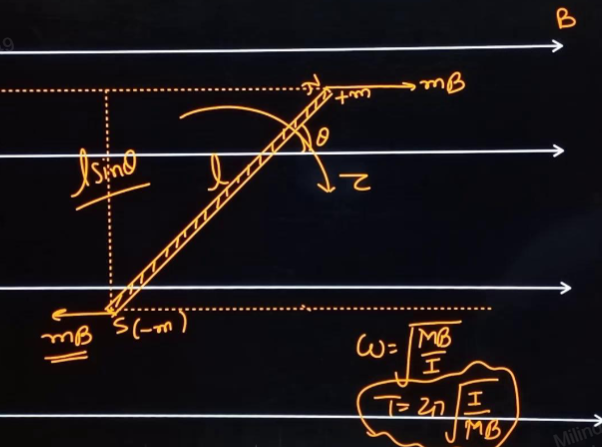 B
N
+m
mB
θ
l sinθ
l
τ
mB
S(-m)
ω=√MB/I
T=2π√I/MB
Milind